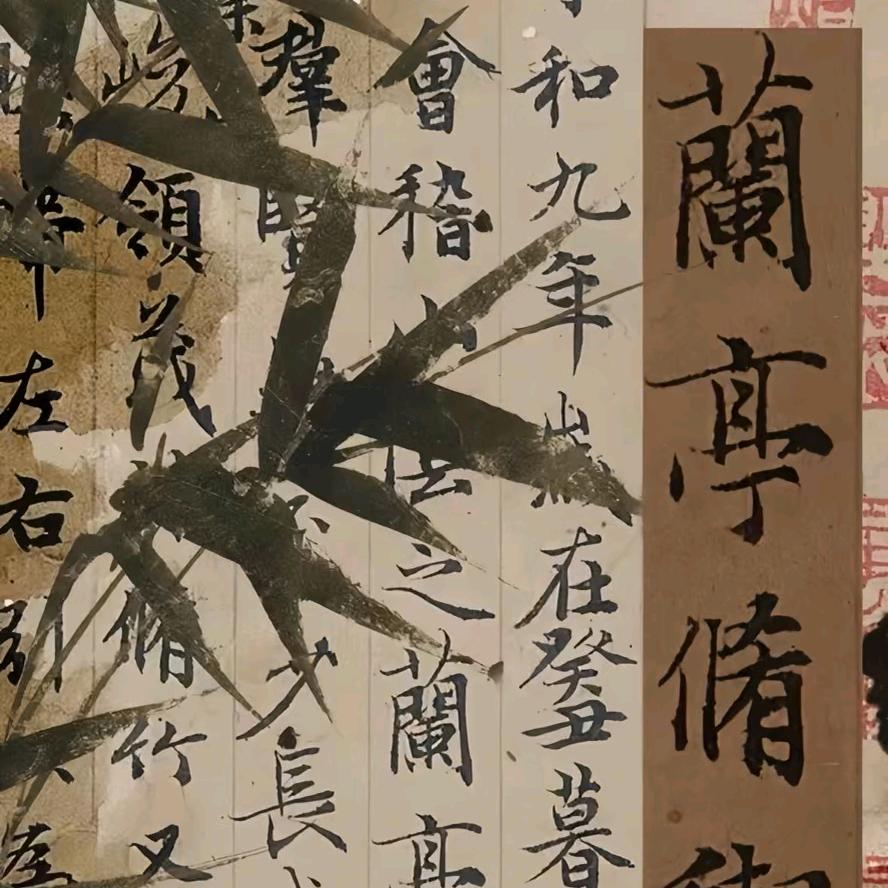 蘭亭脩
和九年歲在癸丑暮
會稽山之蘭亭
羣賢少長
峻領茂林脩竹又
帶左右引